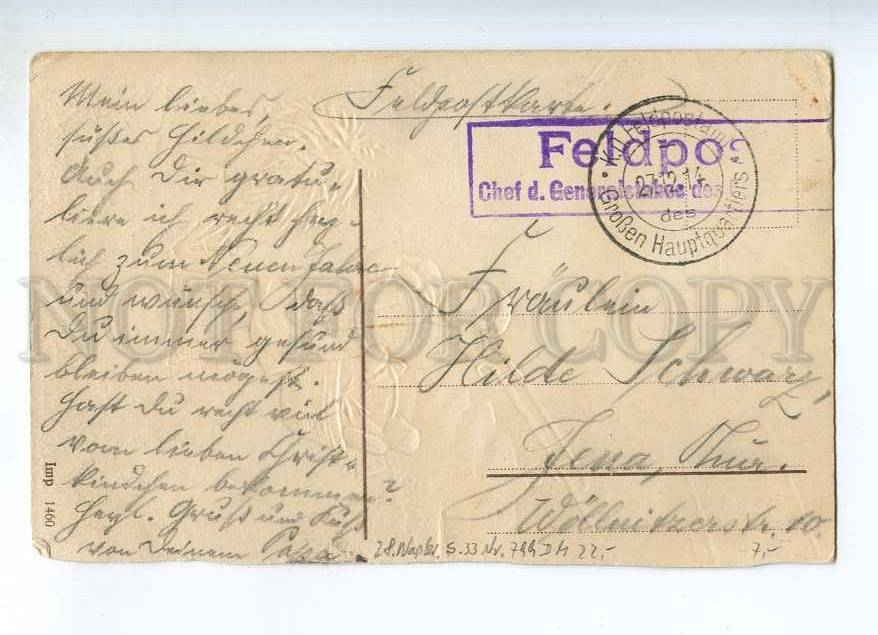 Mein liebes,
süßes Hildchen.
Auch Dir gratu-
liere ich recht herz-
lich zum Neuen Jahre
und wünsche, daß
Du immer gesund
bleiben mögest.
Hast Du recht viel
vom lieben Christ-
kindchen bekommen?
Herzl. Gruß und Kuß
von Deinem Papa
Feldpostkarte.
Feldpos
Chef d. Generalstabes des
K. D. Feldpostamt
27.12.14
des
Großen Hauptquartiers
Fräulein
Hilde Schwarz,
Jena, Thür.
Wöllnitzerstr. 10.
Imp 1460
S. 33 Nr. 22,-
7,-
NOT FOR COPY